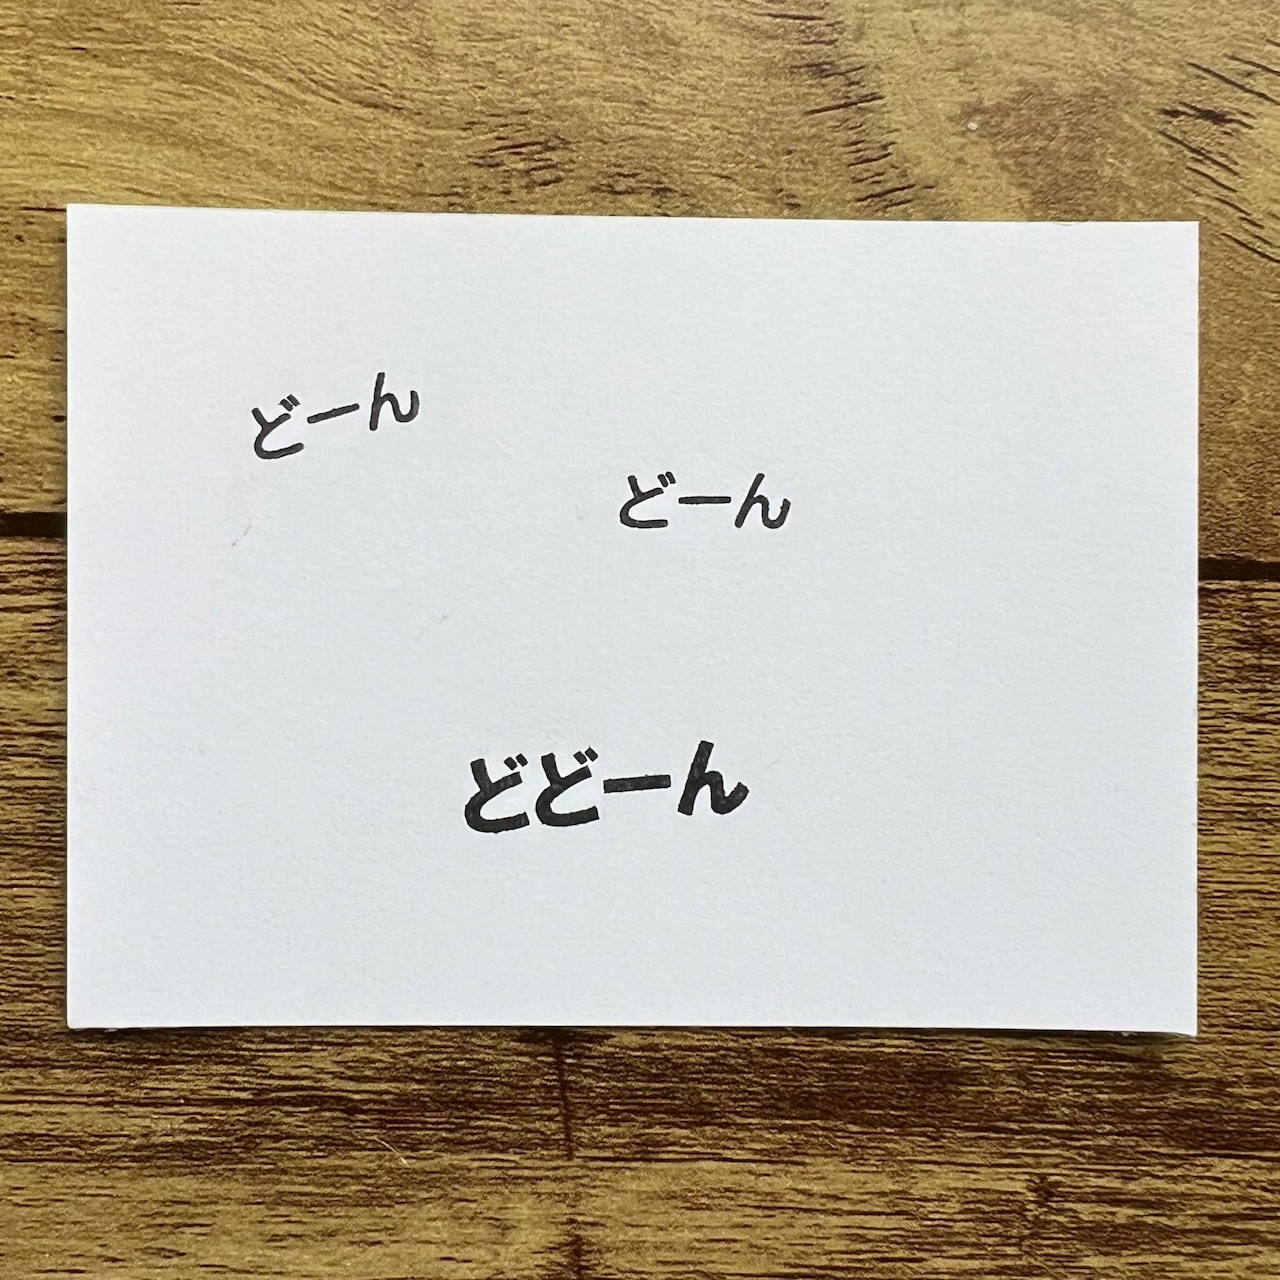 どーん
どーん
どどーん